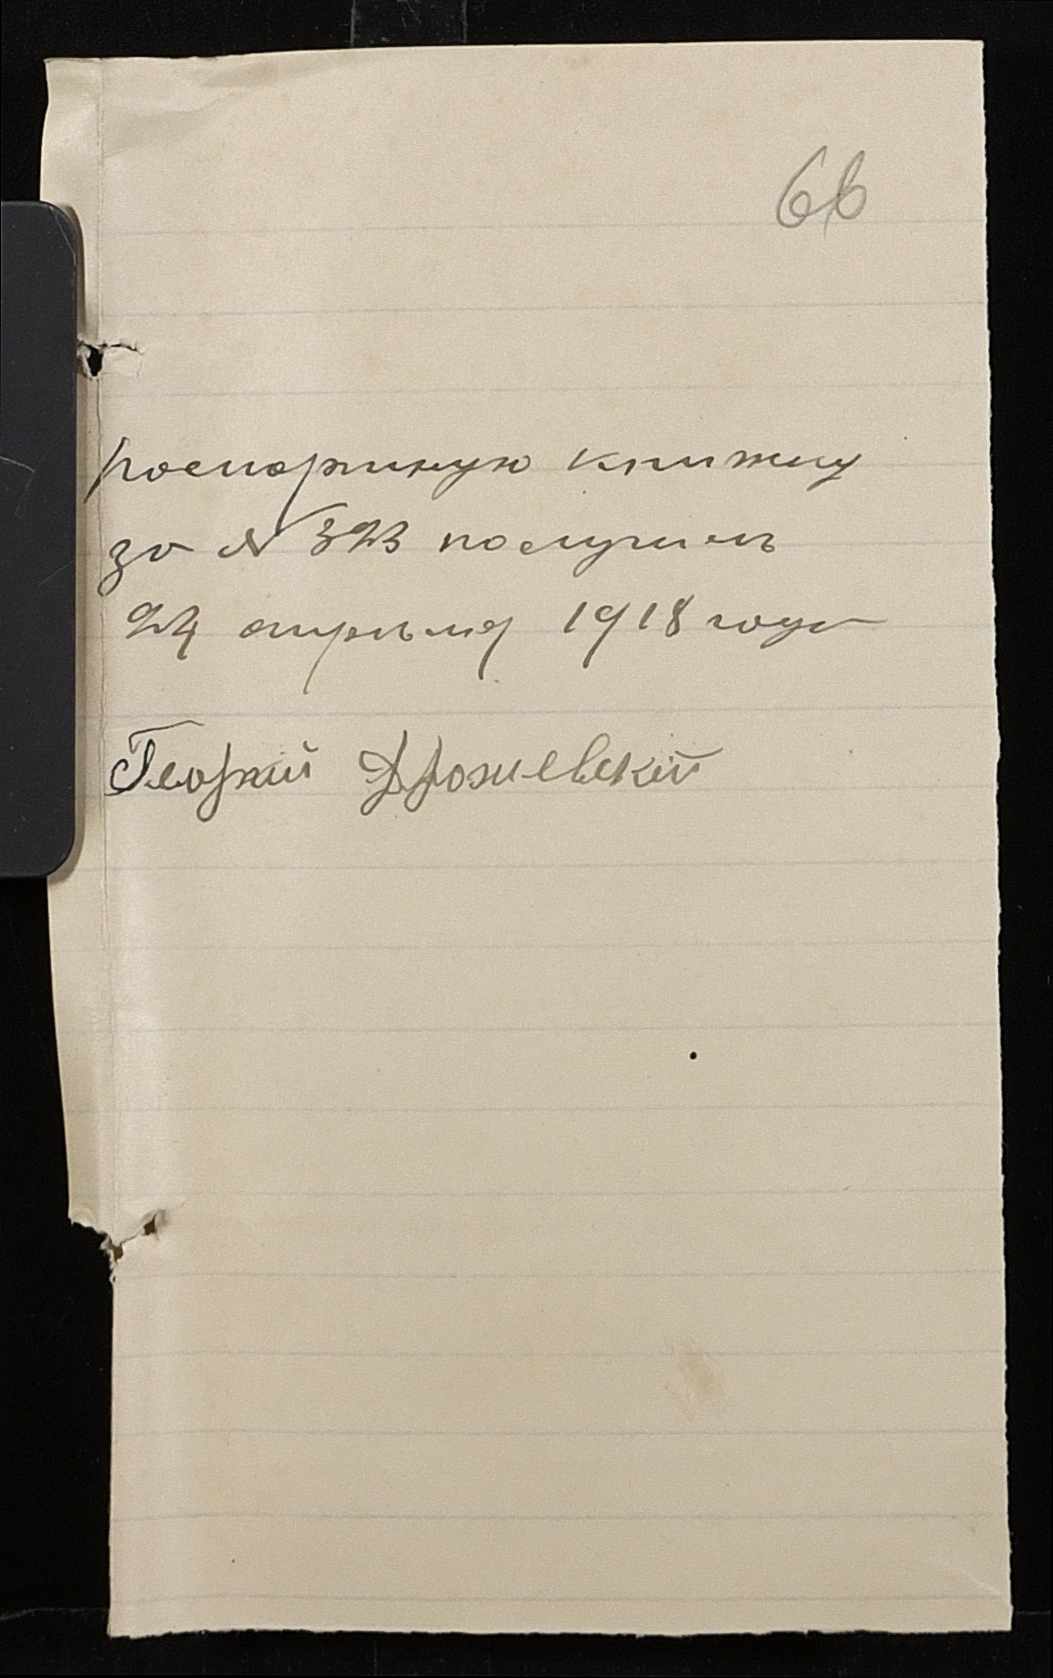 66
паспортную книжку
за № 323 получилъ
24 апреля 1918 года
Георгий Дрожевский